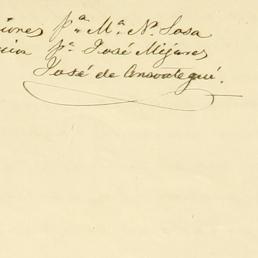 ciones pª Mª Nª Sosa
pª José Mijares
José de Ansoategui.